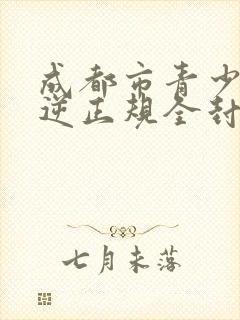 成都市青少
逆正规全封
七月未落